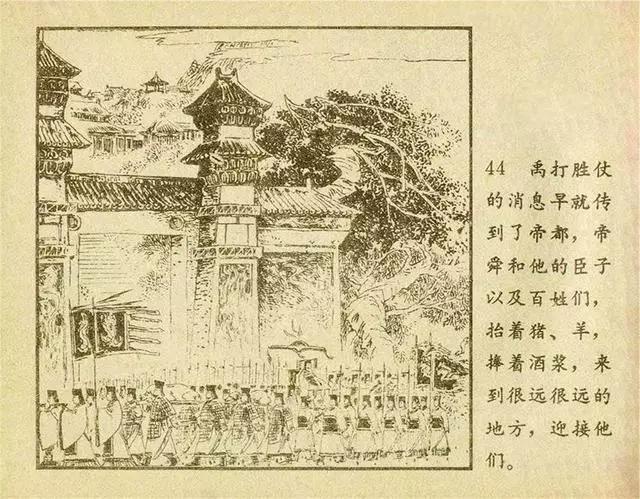 44 禹打胜仗
的消息早就传
到了帝都，帝
舜和他的臣子
以及百姓们，
抬着猪、羊，
捧着酒浆，来
到很远很远的
地方，迎接他
们。